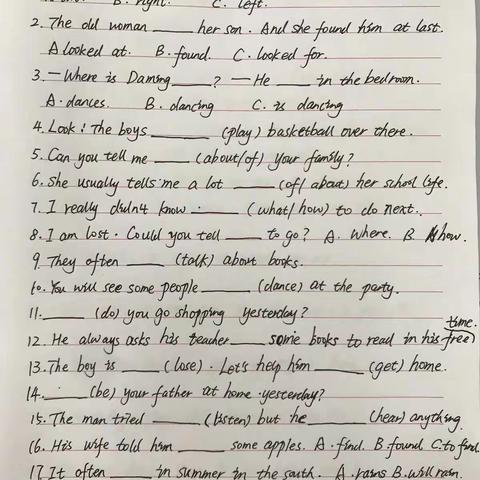 B. right. C. left.
2. The old woman ____ her son. And she found him at last.
A looked at. B. found. C. looked for.
3. — Where is Daming ____ ? — He ____ in the bedroom.
A. dances. B. dancing C. is dancing
4. Look! The boys ____ (play) basketball over there.
5. Can you tell me ____ (about/of) your family?
6. She usually tells me a lot ____ (of/about) her school life.
7. I really didn't know ____ (what/how) to do next.
8. I am lost. Could you tell ____ to go? A. Where. B. how.
9. They often ____ (talk) about books.
10. You will see some people ____ (dance) at the party.
11. ____ (do) you go shopping yesterday?
time.
12. He always asks his teacher ____ some books to read in his free)
13. The boy is ____ (lose). Let's help him ____ (get) home.
14. ____ (be) your father at home yesterday?
15. The man tried ____ (listen) but he ____ (hear) anything.
16. His wife told him ____ some apples. A. find. B. found. C. to find.
17. It often ____ in summer in the south. A. rains B. will rain.